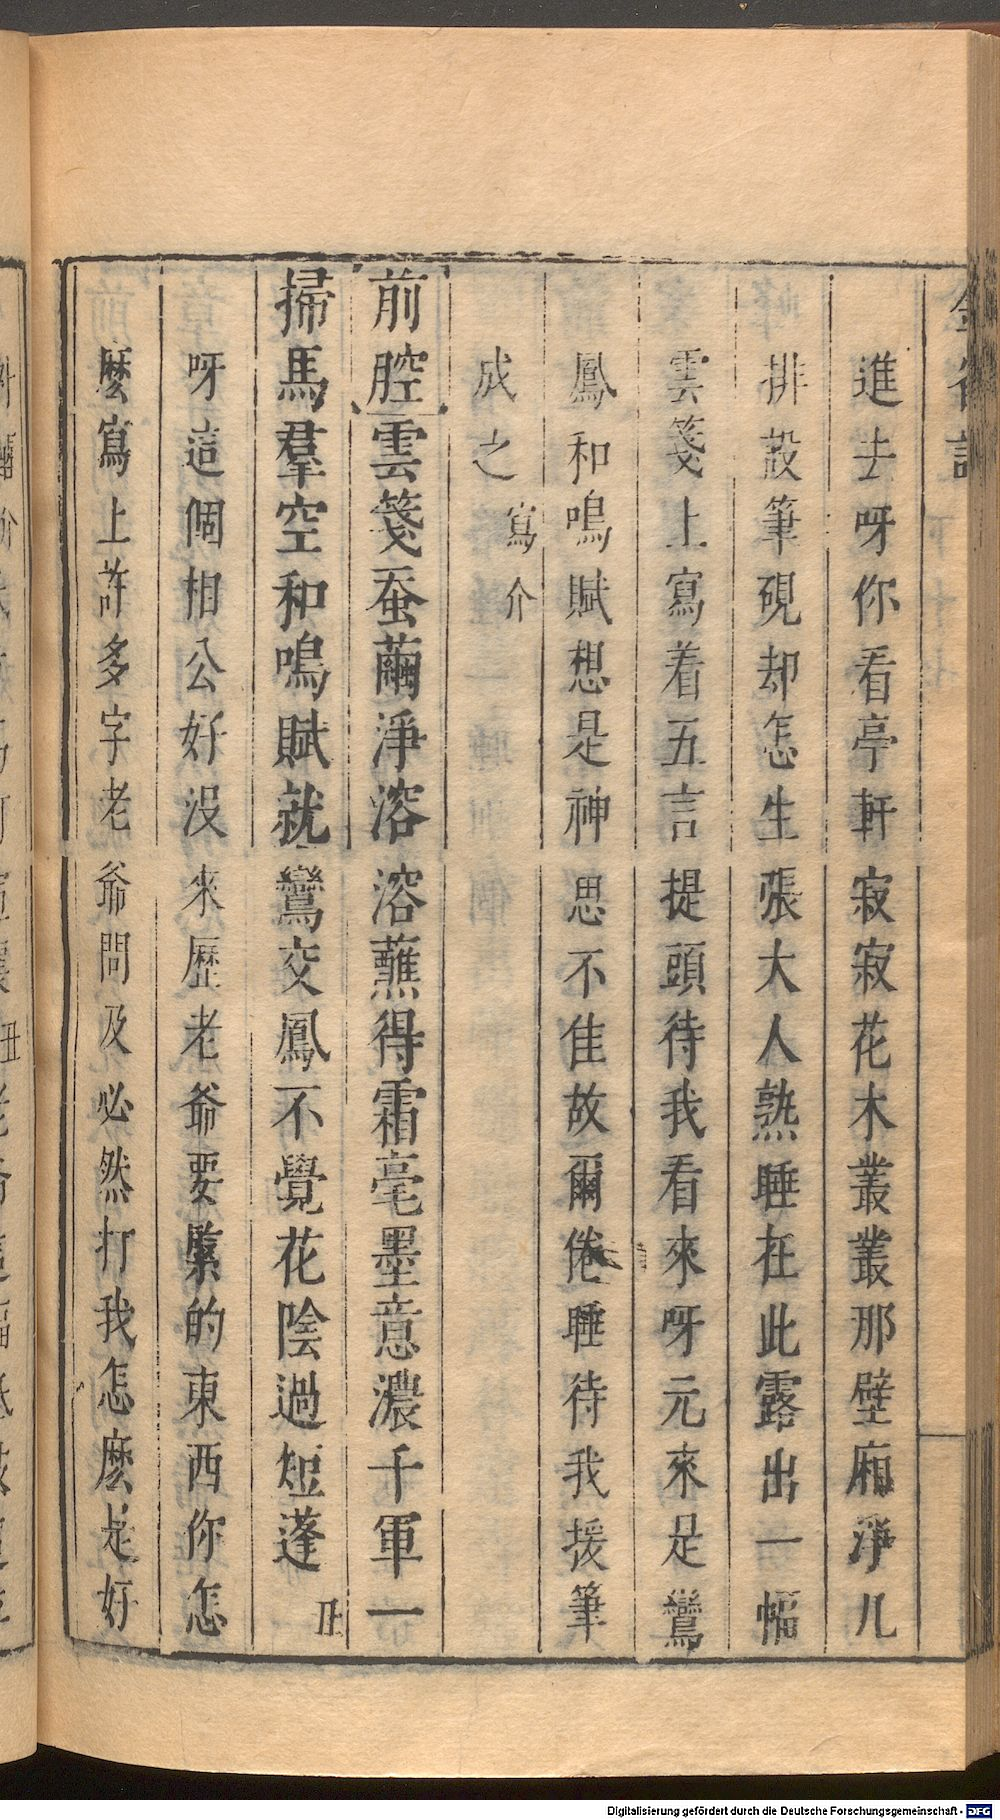 進去呀你看亭軒寂寂花木叢叢那壁廂淨几
排設筆硯却怎生張大人熟睡在此露出一幅
雲箋上寫着五言提頭待我看來呀元來是鸞
鳳和鳴賦想是神思不佳故爾倦睡待我援筆
成之寫介
前腔雲箋蚕繭淨溶溶蘸得霜毫墨意濃千軍一
掃馬羣空和鳴賦就鸞交鳳不覺花陰過短蓬丑
呀這個相公好沒來歷老爺要緊的東西你怎
麼寫上許多字老爺問及必然打我怎麼是好
Digitalisierung gefördert durch die Deutsche Forschungsgemeinschaft - DFG